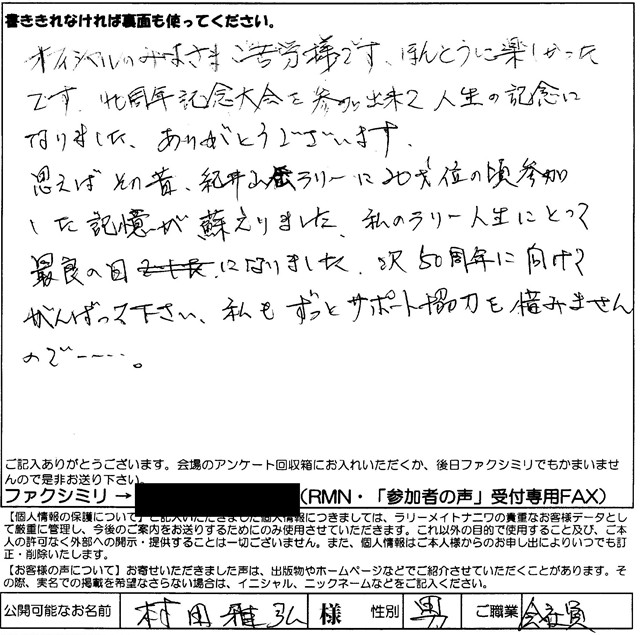 書ききれなければ裏面も使ってください。
オフィシャルのみなさまご苦労様です、ほんとうに楽しかった
です。40周年記念大会を参加出来て人生の記念に
なりました、ありがとうございます。
思えばその昔、紀井山岳ラリーに20才位の頃参加
した記憶が蘇えりました、私のラリー人生にとって
最良の日になりました。次50周年に向けて
がんばって下さい、私もずっとサポート協力を惜みません
ので ― ‥‥。
ご記入ありがとうございます。会場のアンケート回収箱にお入れいただくか、後日ファクシミリでもかまいませ
んので是非お送り下さい。
ファクシミリ → (RMN・「参加者の声」受付専用FAX)
【個人情報の保護について】ご記入いただきました個人情報につきましては、ラリーメイトナニワの貴重なお客様データとし
て厳重に管理し、今後のご案内をお送りするためにのみ使用させていただきます。これ以外の目的で使用すること及び、ご本
人の許可なく外部への開示・提供することは一切ございません。また、個人情報はご本人様からのお申し出によりいつでも訂
正・削除いたします。
【お客様の声について】お寄せいただきました声は、出版物やホームページなどでご紹介させていただくことがあります。そ
の際、実名での掲載を希望なさらない場合は、イニシャル、ニックネームなどをご記入ください。
公開可能なお名前 村田雅弘 様 性別 男 ご職業 会社員